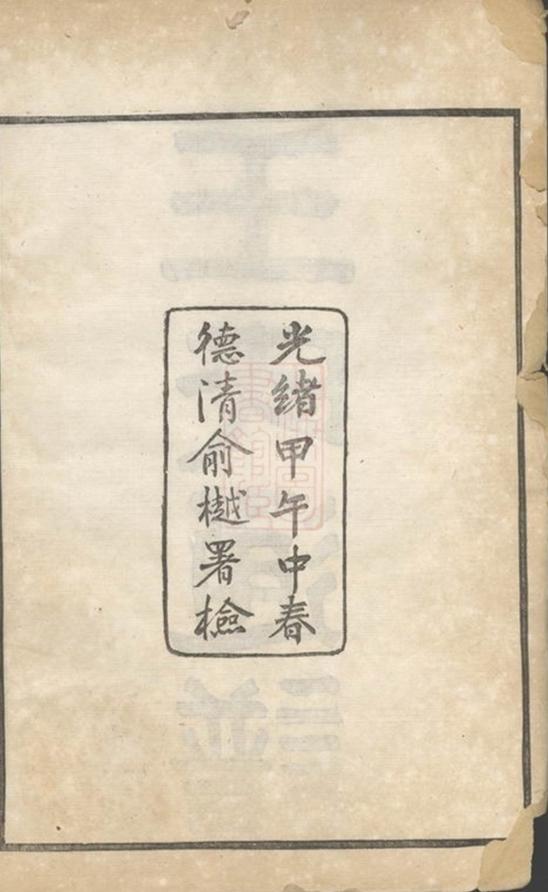 光緒甲午中春
德清俞樾署檢